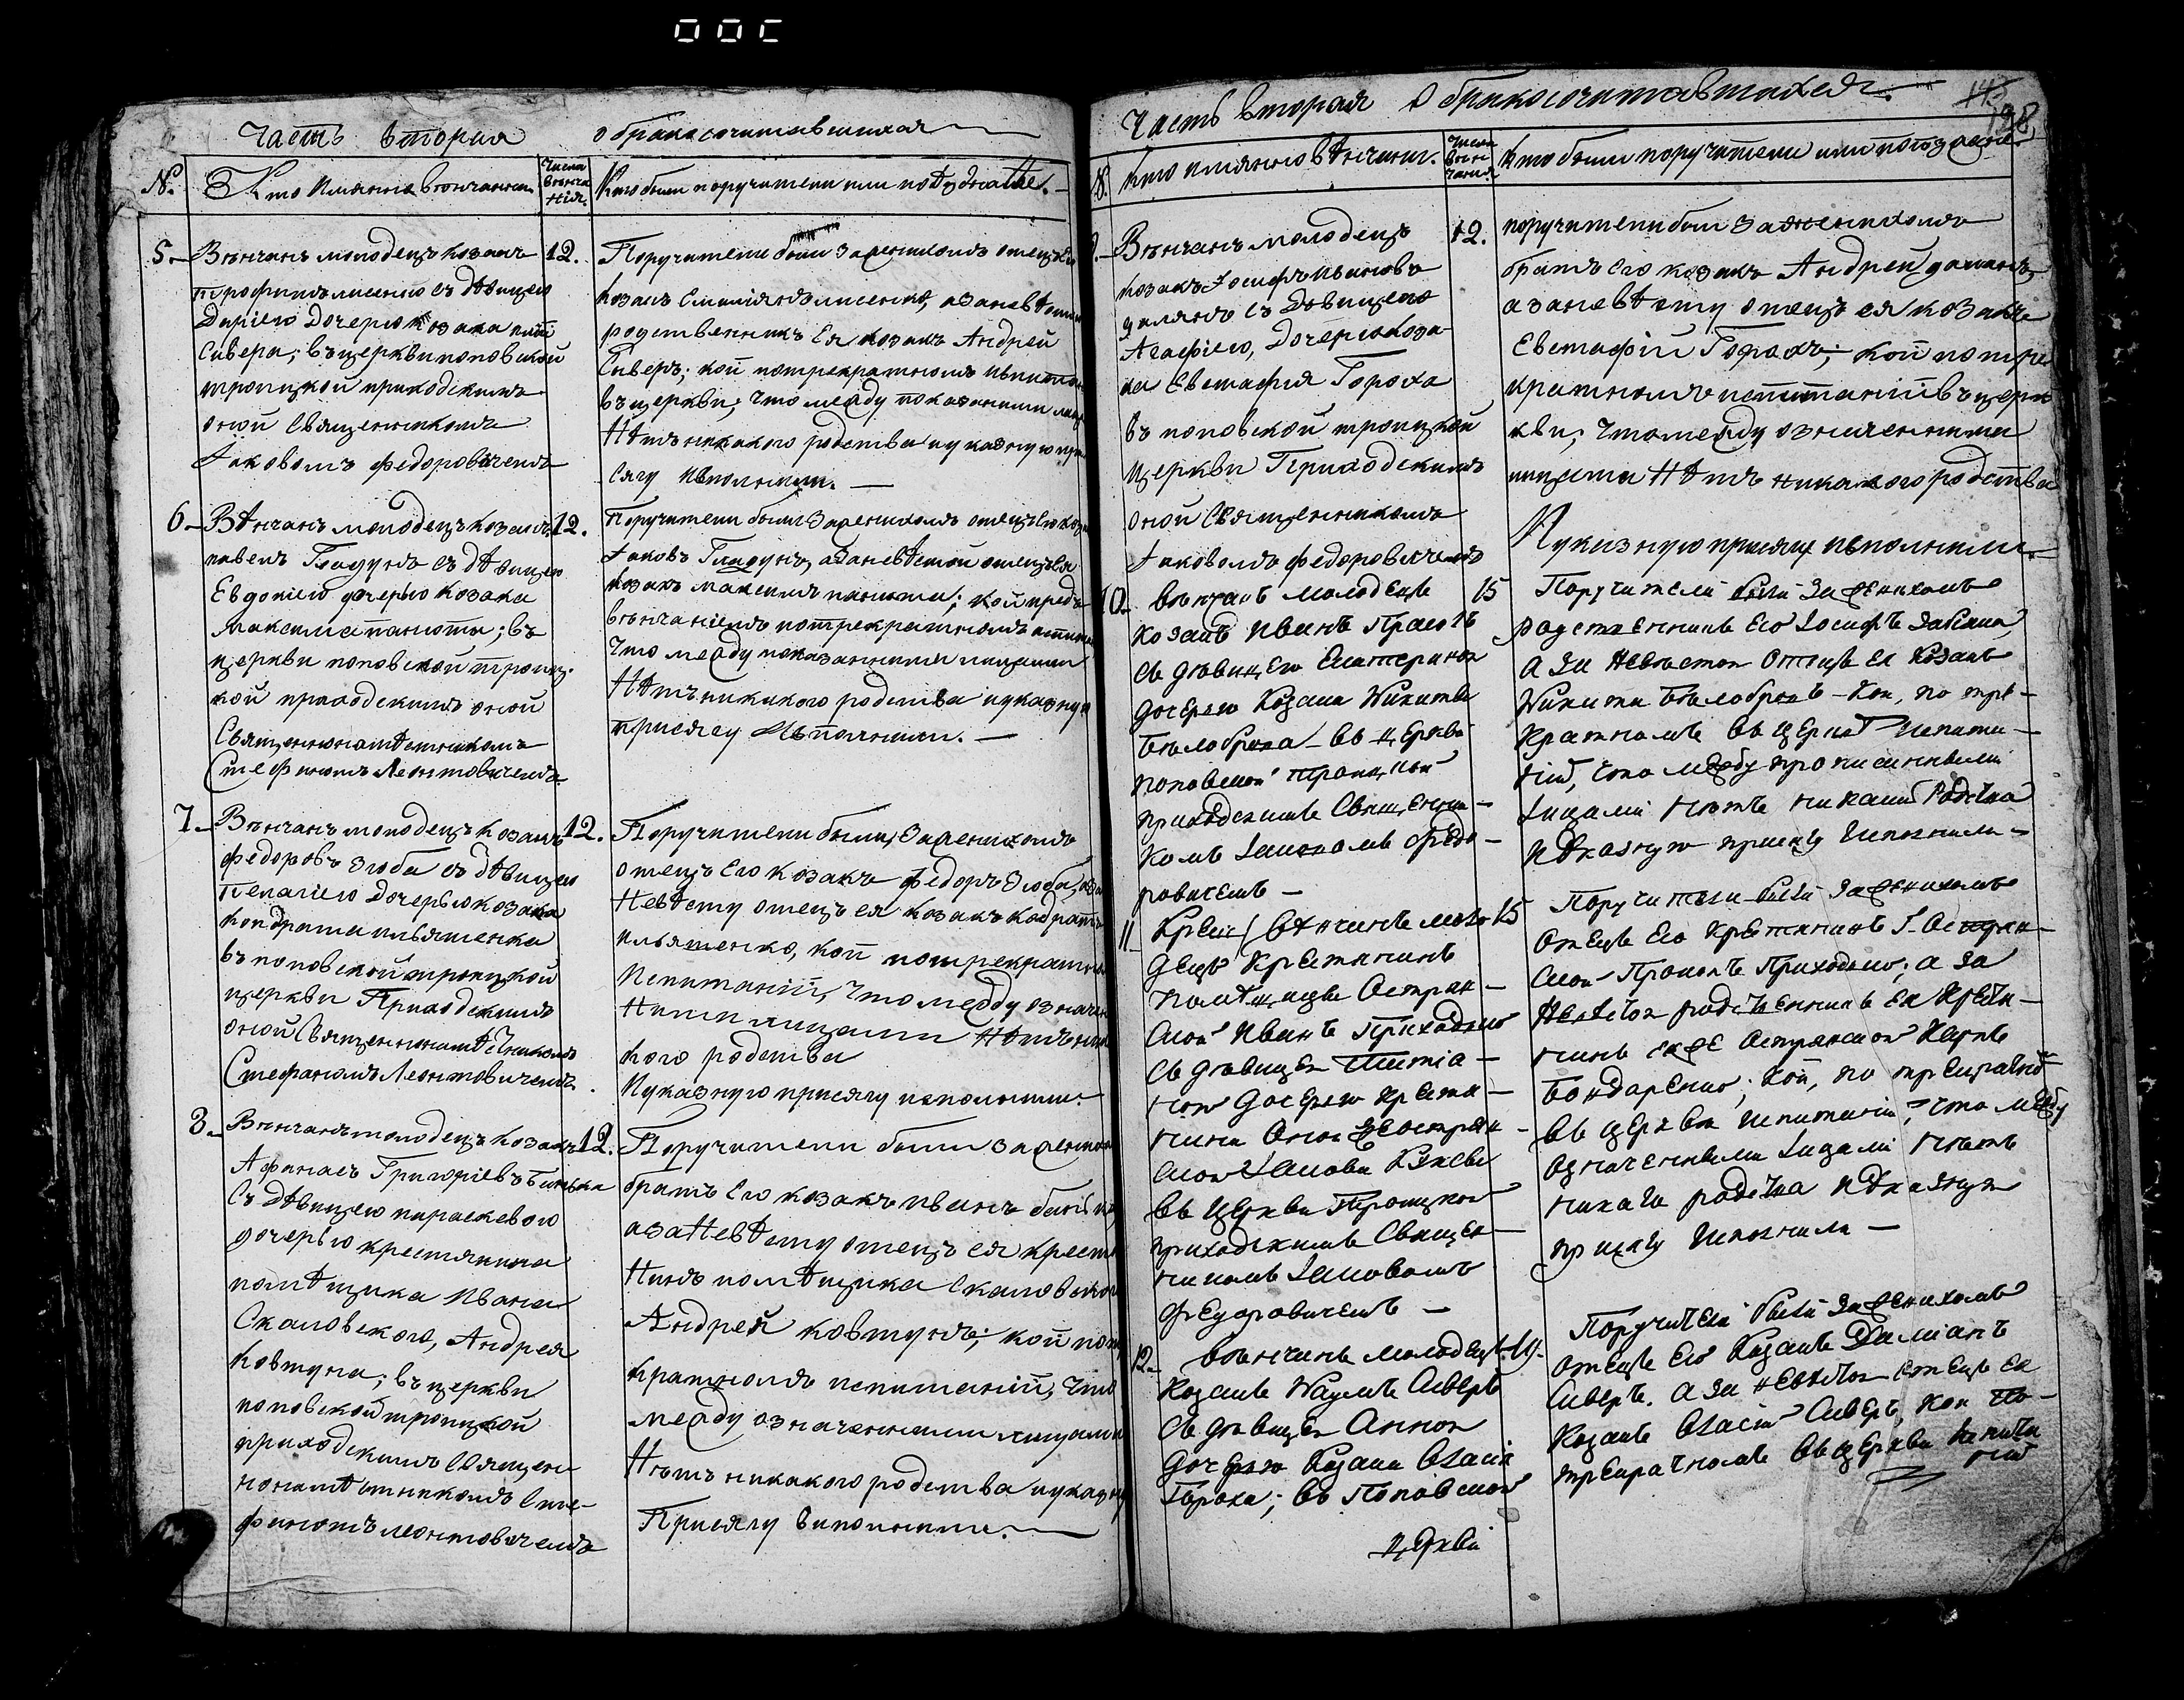 Часть вторая о бракосочитавшихся
N.
Кто имянно вѣнчанъ
Числа венча нія.
Кто были поручители или поѣзжане.
5.
Вѣнчанъ молодецъ козакъ
12.
Трофимъ лисенко съ дѣвицею
Даріею дочерью козака
Сивера; въ церкви поповской
троицкой приходскимъ
оной Священникомъ
Іаковомъ Федоровичемъ
Поручители были за женихомъ отецъ его
козакъ Емиліянъ лисенко, а за невѣстою
родственникъ Ея козакъ Андрей
Сиверъ; кой по трекратномъ испытаніи
въ церкви; что между показанными лицами
Нѣтъ никакого родства и указную при
сягу исполнили.
6
Вѣнчанъ молодецъ козакъ
12.
павелъ Гладунъ съ дѣвицею
Евдокіею дочерью козака
Максима панюты; въ
церкви поповской троиц-
кой приходскимъ оной
Священнонамѣстникомъ
Стефаномъ Леонтовичемъ
Поручители были за женихомъ отецъ его козакъ
Іаковъ Гладунъ, а за невѣстой отецъ ея
козакъ максимъ панюта; кой предъ
вѣнчаніемъ по трекратномъ испытаніи
Что между показанными лицами
Нѣтъ никакого родства и указную
присягу исполнили.
7
Вѣнчанъ молодецъ козакъ
12.
федоровъ Зюба съ дѣвицею
Пелагіею дочерью козака
Кондрата ильяшенка
въ поповской троицкой
церкви Приходскимъ
оной Священнонамѣстникомъ
Стефаномъ Леонтовичемъ
Поручители были, за женихомъ
отецъ его козакъ федоръ Зюба, а за
Невѣсту отецъ ея козакъ кодратъ
ильяшенко, кой по трекратномъ
Испытаній, что между означен
Ными лицами Нѣтъ ника
кого родства
И указную присягу исполнили.
8
Вѣнчанъ молодецъ козакъ
12.
Афанасъ Григоріевъ
Съ дѣвицею параскевою
дочерью крестянина
помѣщика Ивана
Скаловского, Андрея
Ковтуна; въ церкви
поповской троицкой
приходскимъ Священ-
нонамѣстникомъ Сте-
фаномъ леонтовичемъ
Поручители были за женихомъ
братъ его козакъ иванъ
а за Невѣсту отецъ ея крестя
Нинъ помѣщика Скаловского
Андрей ковтунъ; кой по тре
кратномъ испытаній, что
между означенными лицами
Нѣтъ никакого родства и указную
Присягу виполнили.
Часть вторая О бракосочитавшихся.
198
N.
Кто имянно вѣнчанъ.
Числа вѣн чанія.
Кто были поручители или поезжане.
9.
Вѣнчанъ молодецъ
12.
козакъ Іосифъ ивановъ
съ Дѣвицею
Агафіею, Дочерью коза
ка Евстафія Гороха
въ поповской троицкой
церкви Приходскимъ
оной Священникомъ
Іаковомъ федоровичемъ
поручители были за женихомъ
братъ его козакъ Андрей
а за невѣсту отецъ ея козакъ
Евстафій Горохъ; кой по тре
кратномъ испытаній въ цер
кви; что между означенными
лицами Нѣтъ никакого родства
И указную присягу исполнили.
10.
Вѣнчанъ молодецъ
15
козакъ Иванъ
съ дѣвицею Екатериною
дочерью козака Никиты
Бѣлоброва въ церкви
поповской троицкой
приходскимъ Священни-
комъ Іаковомъ Федо-
ровичемъ
Поручители были за женихомъ
родственникъ его Іосифъ
а за невѣстою отецъ ея козакъ
Никита Бѣлобровъ кои, по тре-
кратномъ въ церкви испыта-
ній, что между прописанными
лицами нѣтъ никаго родства
и указную присягу исполнили
11
Вѣнчанъ моло
15
децъ крестянинъ
помѣщицы Остран-
ской Иванъ Приходько
съ дѣвицею
дочерью крестя-
нина оной же Остран-
ской Іакова
въ церкви Троицкой
приходскимъ Священ-
никомъ Іаковомъ
Федоровичемъ
Поручители были за женихомъ
отецъ его крестянинъ Г. Остран-
ской Прокопъ Приходько; а за
невѣстою родственникъ ея крестя-
нинъ
Бондаренко; кой, по трекратномъ
въ церкви испытаніи, что между
означенными лицами нѣтъ
никаго родства и указную
присягу исполнили
12
Вѣнчанъ молодецъ
19.
козакъ Наумъ Сиверъ
съ дѣвицею Анною
дочерью козака Власія
Гороха; въ Поповской
церкви
Поручители были за женихомъ
отецъ его козакъ Даміанъ
Сиверъ. а за невѣстою отецъ ея
козакъ Власій Сиверъ, кои по-
трекратномъ въ церкви испыта
ній